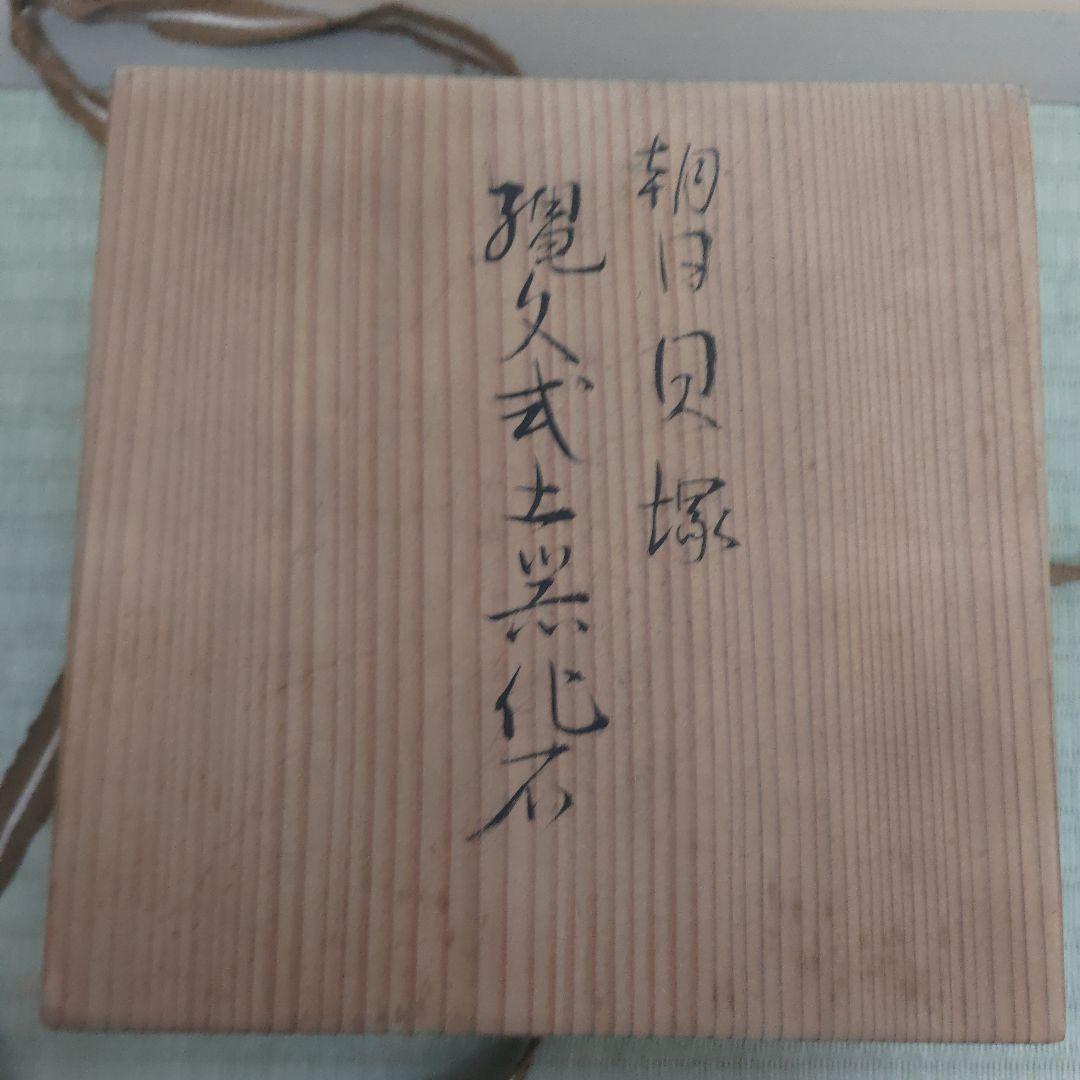 朝日貝塚
縄文式土器化石